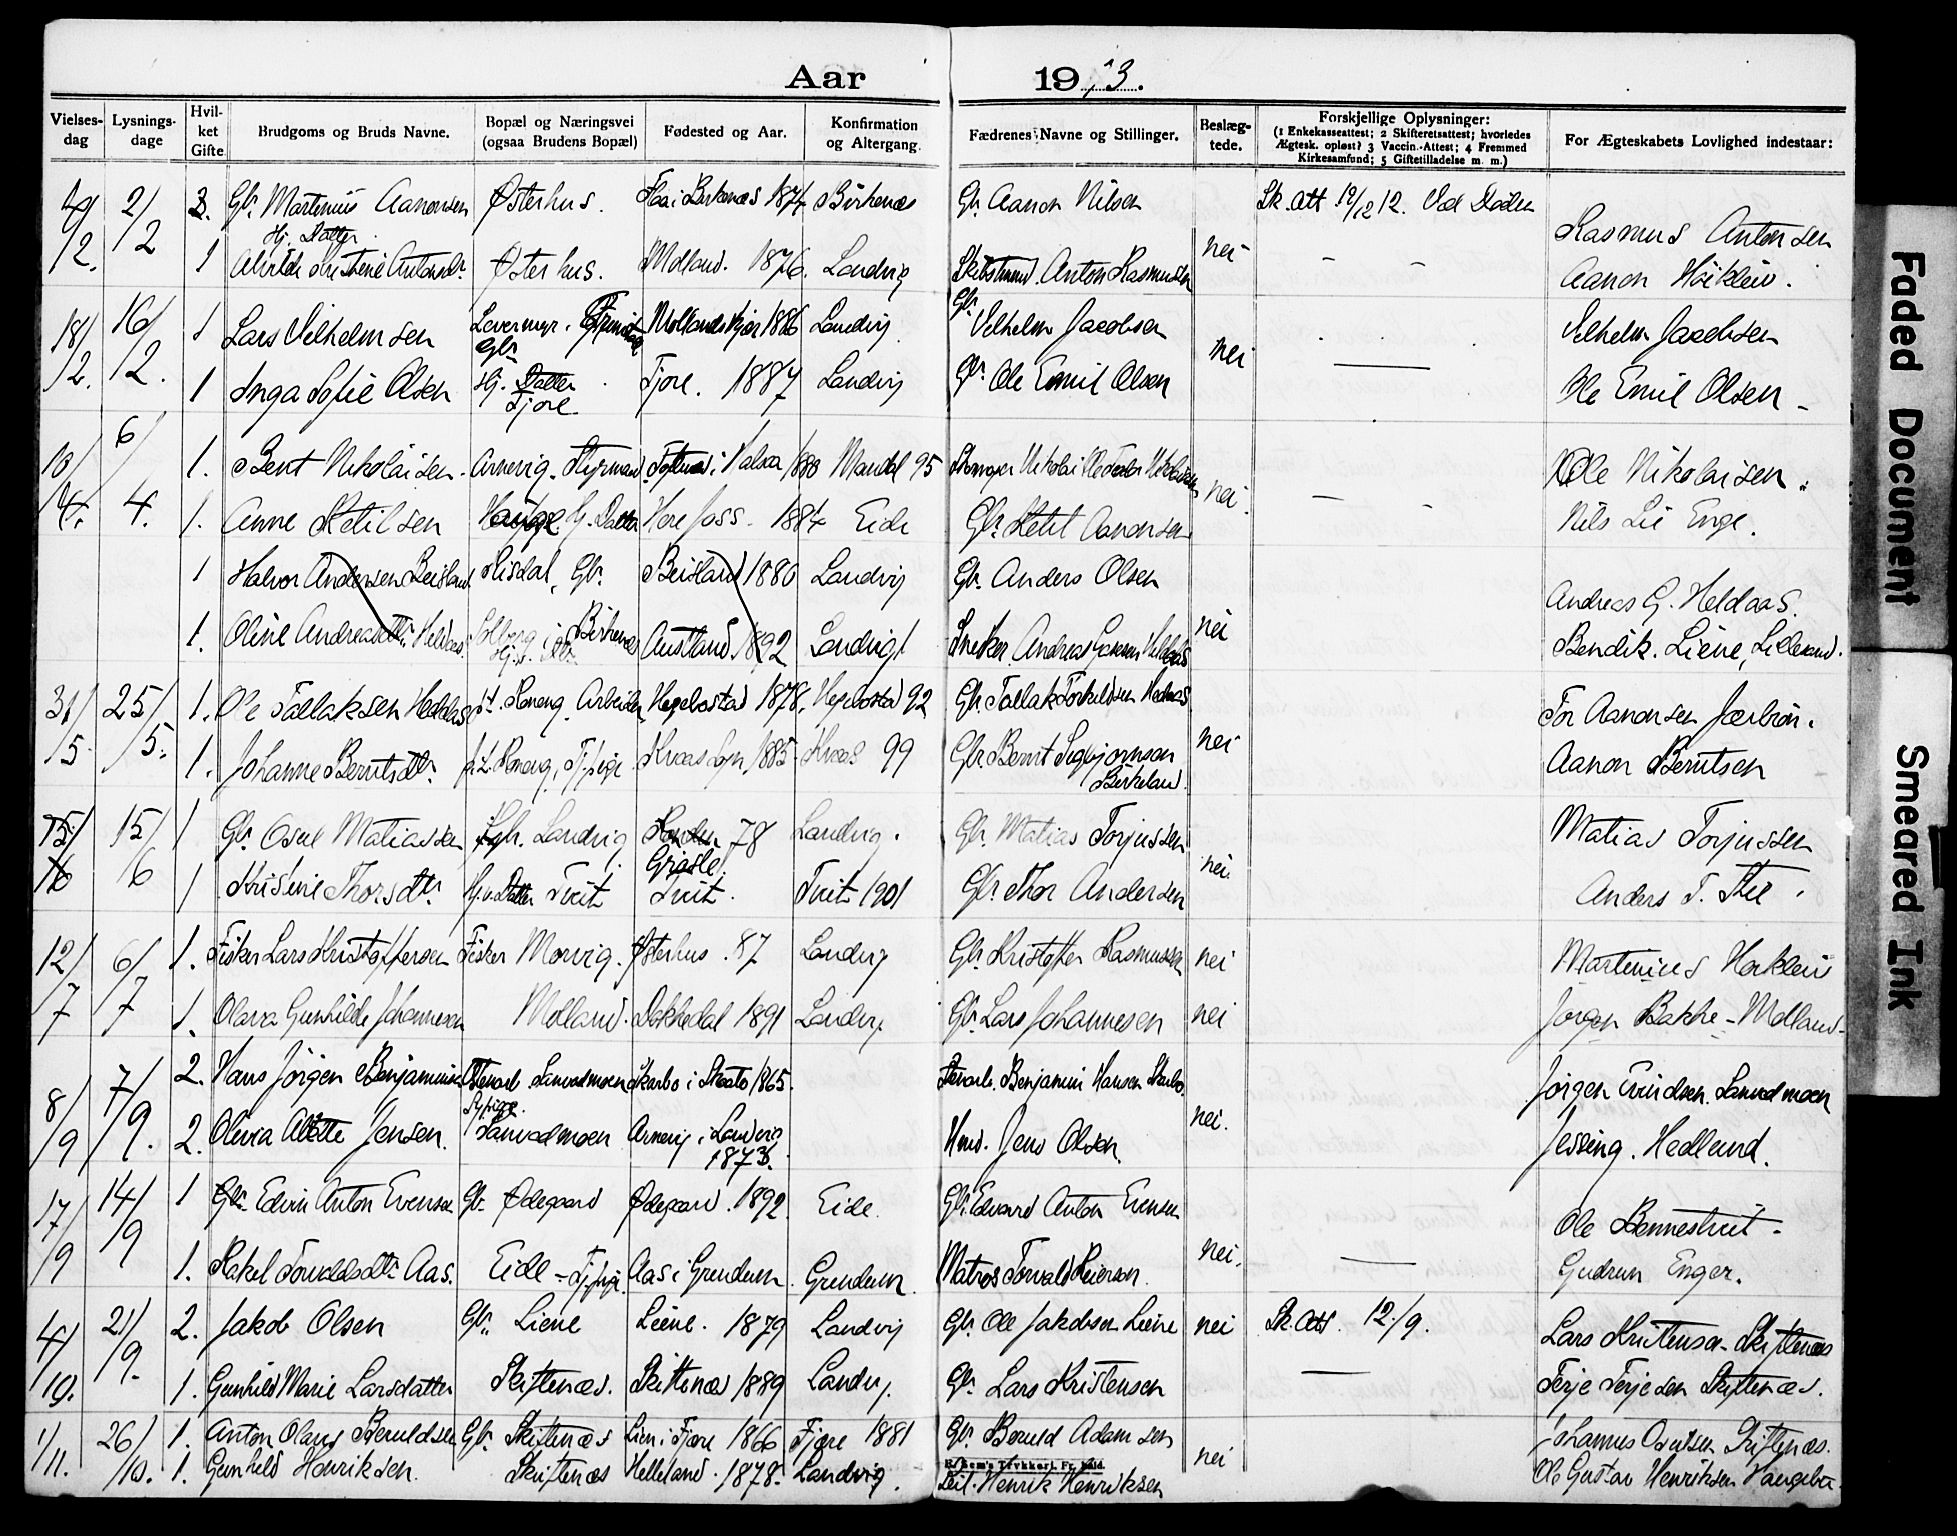 Aar 1913.
Vielses-dag Lysnings-dage Hvil-ket Gifte Brudgoms og Bruds Navne. Bopæl og Næringsvei (ogsaa Brudens Bopæl) Fødested og Aar. Konfirmation og Altergang. Fædrenes Navne og Stillinger. Beslæg-tede. Forskjellige Oplysninger: (1 Enkekasseattest; 2 Skifteretsattest; hvorledes Ægtesk. opløst? 3 Vaccin.-Attest; 4 Fremmed Kirkesamfund; 5 Giftetilladelse m. m.) For Ægteskabets Lovlighed indestaar:
2/2 Gbr. Martinius Aanonsen Østerhus. Flaa i Birkenæs 1874 Birkenæs Gbr. Aanon Nilsen Sk. Att 19/12 12. Ved Døden Rasmus Antonsen
Hj. Datter
1 Østerhus. Molland. 1876. Landvig Anton Rasmussen nei Aanon Høiklein.
18/2. 16/2. 1 Lars Vilhelmsen Mollandskjær 1886 Landvig. Gbr. Vilhelm Jacobsen nei Vilhelm Jacobsen
1 Inga Sofie Olsen Hj. Datter Fjære Fjære. 1887 Landvig Gbr. Ole Emil Olsen Ole Emil Olsen
10/4. 6/4. 1. Bent Nikolaisen Arnevig. Styrmand 1880 Mandal 95 nei. Ole Nikolaisen.
1. Anne Ketilsen Hj. Datter Herefoss. 1884 Eide Gbr. Ketil Aanonsen Nils Lie Enge.
1 Halvor Andersen Beisland Risdal, Gbr. Beisland 1886 Landvig Gbr. Anders Olsen nei Andreas G. Heldaas.
1. Oline Andreasdtr. Heldaas Solberg i Birkenæs Austland 1892 Landvig Bendik. Liene, Lillesand.
31/5. 25/5. 1. Ole Tallaksen Arbeider, Hegebostad 1878, Hegebostad 92 Gbr. Tallak nei Tor Aanonsen
1. Johanne Berntsdtr. Tj.pige Kvaas Sogn 1885. Kvaas 99 Gbr. Bernt Birkeland. Aanon Berntsen
15/6 15/6 1 Gbr. Osul Matiassen Landvig 78 Landvig. Gbr. Matias Torjussen nei. Matias Torjussen
1 Kristine Thorsdtr. Hj.v. Datter Tveit Tveit. Tveit 1901 Gbr. Thor Andersen Anders T.
12/7 6/7 1. Fisker Lars Kristoffersen Fisker Morvig. Østerhus. 87 Landvig Gbr. Kristoffer Rasmussen nei Martinius Høiklein
1. Olava Gunhilde Johannesen Molland. Dokkedal 1891 Landvig. Gbr. Lars Johannesen nei Jørgen Bakke - Molland
8/9 7/9. 2. Hans Jørgen Benjaminsen Skarbo i Skaatø 1865. Benjamin Hansen Skarbo. nei. Jørgen Evindsen.
2. Olivia Jensen. Arnevig i Landvig 1873. Jens Olsen. Jessing. Hedlund.
17/9 14/9 1 Gbr. Edvin Anton Evensen Gbr. Ødegaard Ødegaard. 1892. Eide. Gbr. Edvard Anton Evensen nei. Ole Bennestveit
1. Rakel Torvaldsdtr. Aas. Eide - Tj.pige Aas i Grendum Grendum. Matros Torvald Reierson. Gudrun Enger.
4/10. 21/9. 2. Jakob Olsen Gbr. Liene Liene. 1879 Landvig Gbr. Ole Jakobsen Liene nei Sk. Att. 12/9. Lars Kristensen Skiftenæs
1. Gunhild Marie Larsdatter Skiftenæs. Skiftenæs 1889 Landvig. Gbr. Lars Kristensen Terje Terjesen Skiftenæs.
1/11. 26/10. 1. Anton Olaus Beruldsen Gbr. Skiftenæs Lien i Fjære 1866 Fjære 1881 Gbr. Beruld Adamsen nei Johannes Osulsen Skiftenæs.
1. Gunhild Henriksen. Skiftenæs Helleland. 1878. Landvig. Henrik Henriksen Ole Gustav Henriksen
Faded Document
Smeared Ink